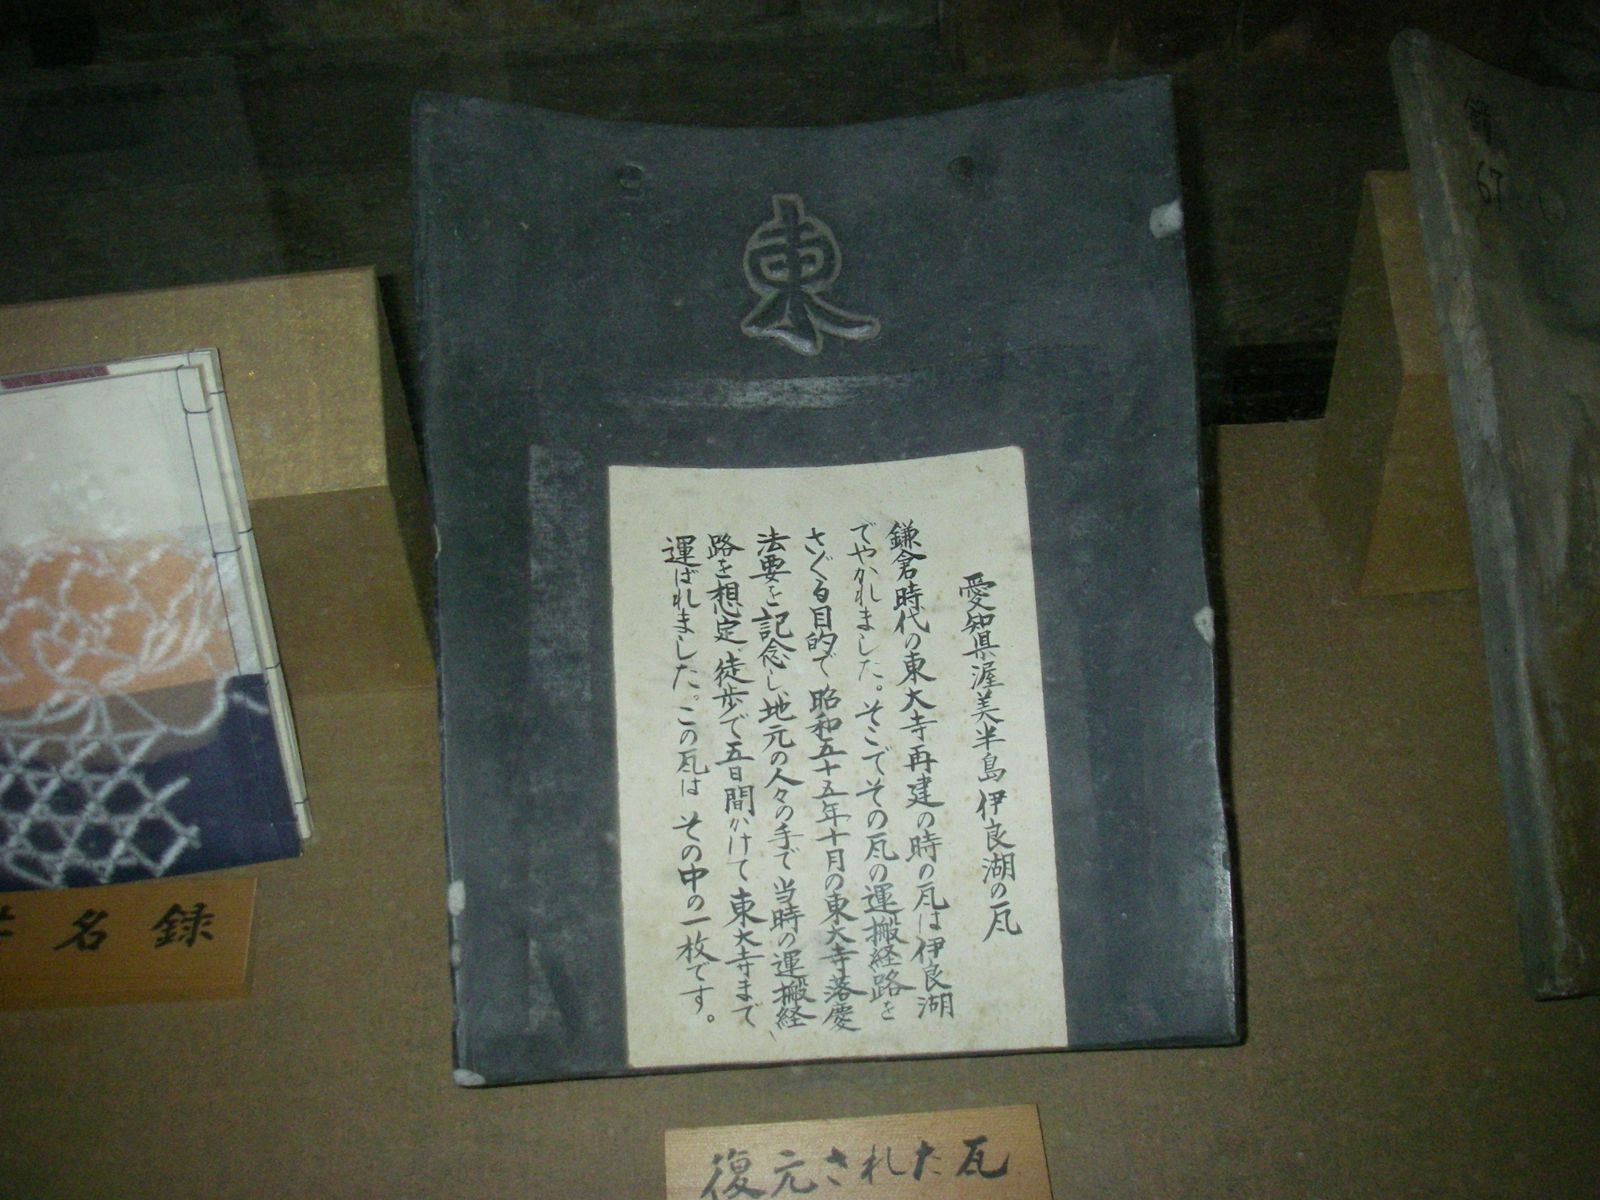 東
愛知県渥美半島伊良湖の瓦
鎌倉時代の東大寺再建の時の瓦は伊良湖
でやかれました。そこでその瓦の運搬経路を
さぐる目的で昭和五十五年十月の東大寺落慶
法要を記念し、地元の人々の手で当時の運搬経
路を想定、徒歩で五日間かけて東大寺まで
運ばれました。この瓦は その中の一枚です。
復元された瓦
名録
67